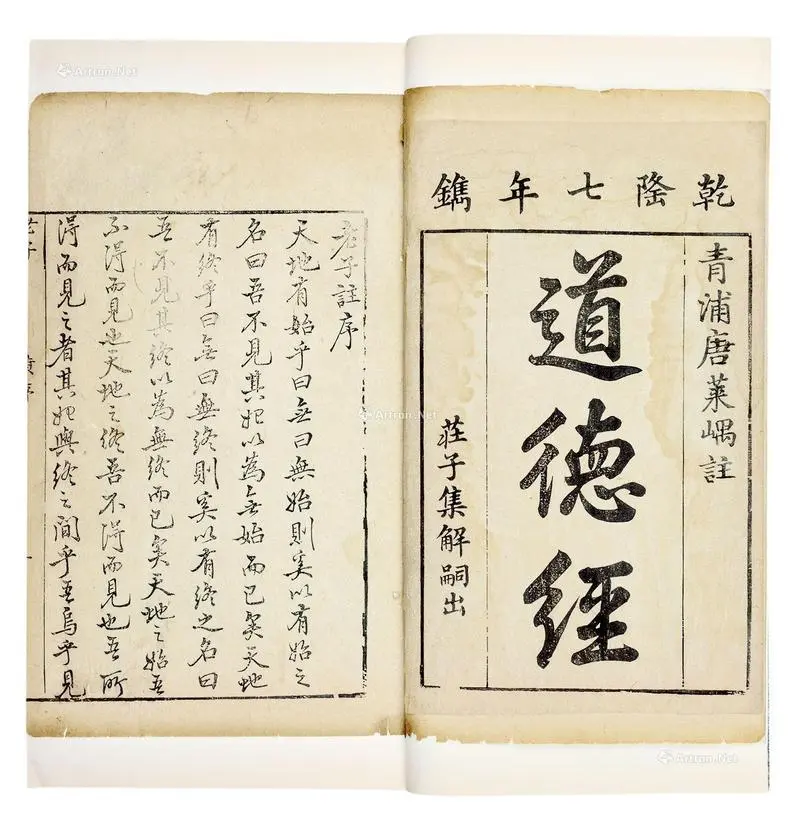 乾隆七年鐫
青浦唐萊嵎註
道德經
莊子集解嗣出
老子註序
天地有始乎曰無曰無始則奚以有始之
名曰吾不見其始以為無始而已矣天地
有終乎曰無曰無終則奚以有終之名曰
吾不見其終以為無終而已矣天地之始吾
不得而見也天地之終吾不得而見也吾所
得而見之者其始與終之間乎吾烏乎見
老子
Artron.Net
Artron.Net
Artron.Net